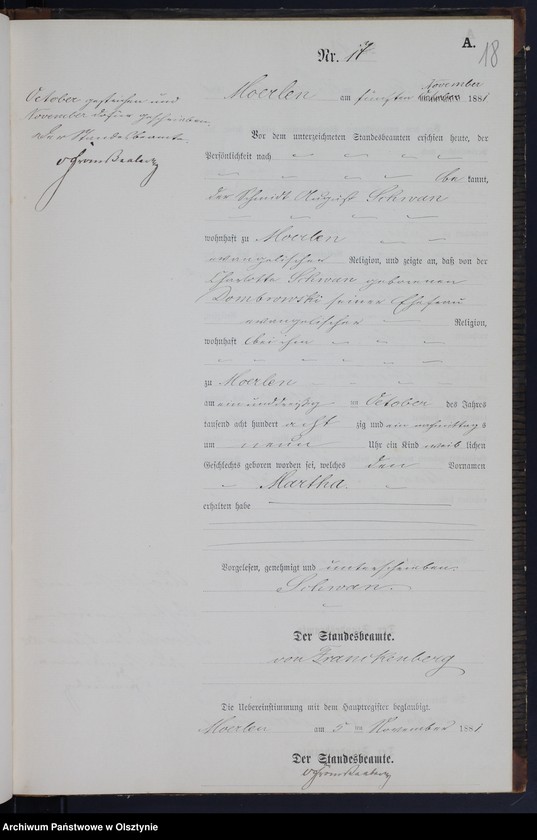 A.
18
Nr. 17
October gestrichen und
November dafür geschrieben.
Der Standesbeamte.
Moerlen am fünften November 1881
Vor dem unterzeichneten Standesbeamten erschien heute, der
Persönlichkeit nach
bekannt,
der Schmidt August Schwan
wohnhaft zu Moerlen
evangelischer Religion, und zeigte an, daß von der
Charlotte Schwan geborenen
Dombrowski seiner Ehefrau
evangelischer Religion,
wohnhaft bei ihm
zu Moerlen
am einunddreißig ten October des Jahres
tausend acht hundert achtzig und ein Nachmittags
um neun Uhr ein Kind weiblichen
Geschlechts geboren worden sei, welches den Vornamen
Martha
erhalten habe
Vorgelesen, genehmigt und unterschrieben.
Schwan.
Der Standesbeamte.
von Franckenberg
Die Uebereinstimmung mit dem Hauptregister beglaubigt.
Moerlen am 5 ten November 1881
Der Standesbeamte.
Archiwum Państwowe w Olsztynie